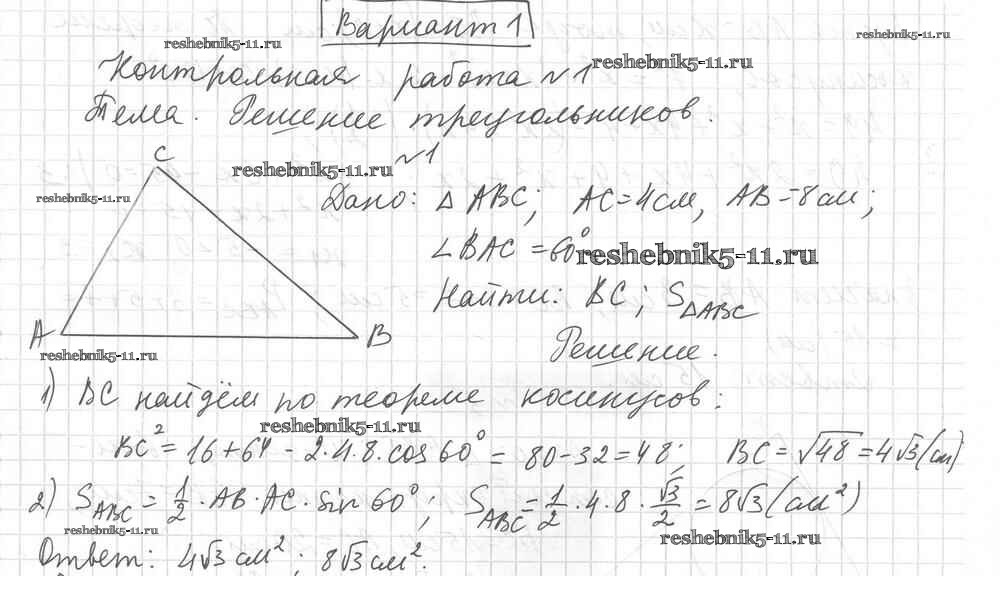 Вариант 1
reshebnik5-11.ru
reshebnik5-11.ru
Контрольная работа №1
reshebnik5-11.ru
Тема. Решение треугольников.
C
reshebnik5-11.ru
№1
reshebnik5-11.ru
Дано: △ABC; AC=4см, AB=8см;
∠BAC = 60°
reshebnik5-11.ru
Найти: BC; S△ABC
A
B
Решение.
reshebnik5-11.ru
1) BC найдём по теореме косинусов:
reshebnik5-11.ru
BC² = 16 + 64 - 2·4·8·cos 60° = 80 - 32 = 48; BC = √48 = 4√3 (см)
2) S ABC = 1/2 · AB · AC · sin 60°; S ABC = 1/2 · 4 · 8 · √3/2 = 8√3 (см²)
reshebnik5-11.ru
reshebnik5-11.ru
Ответ: 4√3 см²; 8√3 см².